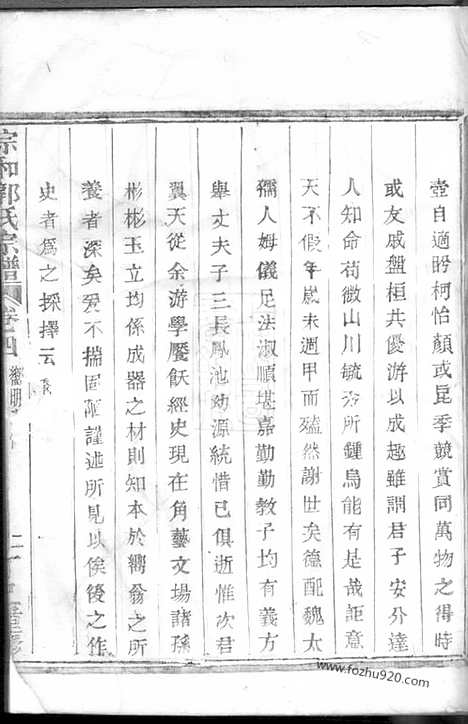 壺自適眄柯怡顏或昆季競賞同萬物之得時
或友戚盤桓共優游以成趣雖謂君子安分達
人知命苟微山川毓秀所鍾烏能有是哉詎意
天不假年歲未週甲而磕然謝世矣德配魏太
孺人姆儀足法淑順堪嘉勤勤教子均有義方
舉丈夫子三長鳳池幼源統惜已俱逝惟次君
翼天從余游學饜飫經史現在角藝文場諸孫
彬彬玉立均係成器之材則知本於嚮翁之所
養者深矣爰不揣固陋謹述所見以俟後之作
史者為之採擇云
宗和郭氏宗譜 卷四 嚮明
www.fozhu920.com